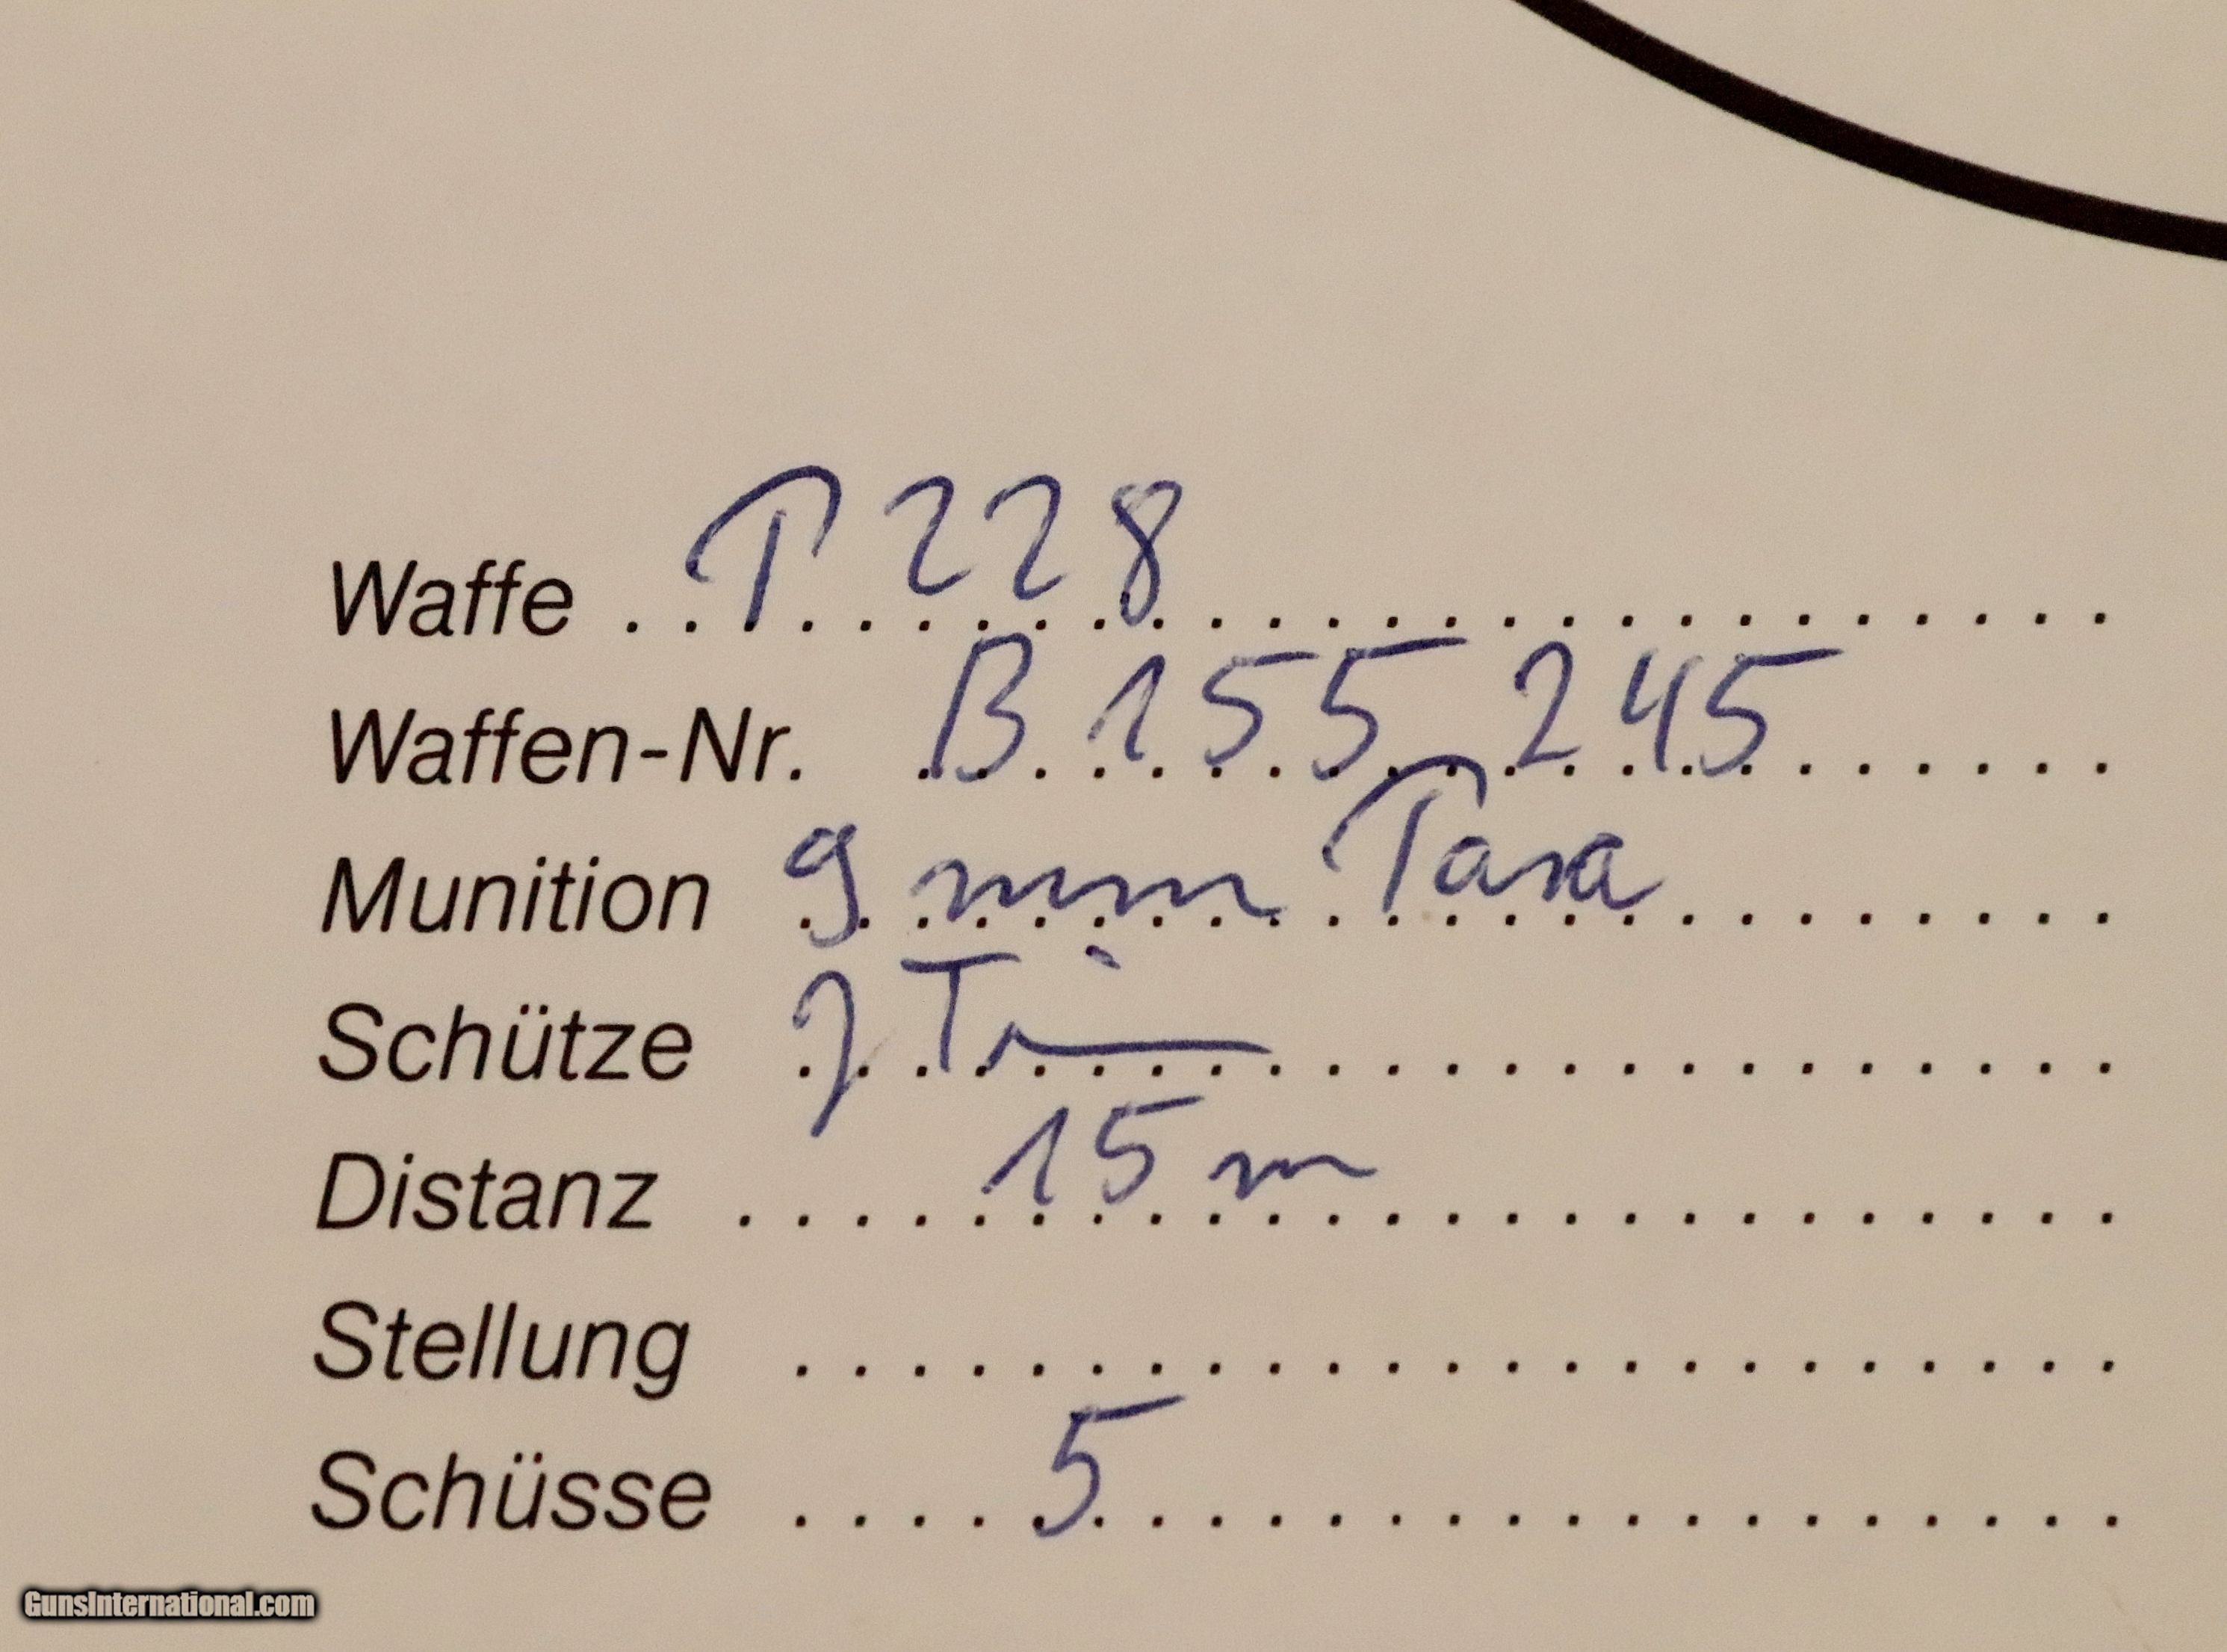 Waffe P 228
Waffen-Nr. B 155 245
Munition 9 mm Para
Schütze
Distanz 15 m
Stellung
Schüsse 5
GunsInternational.com